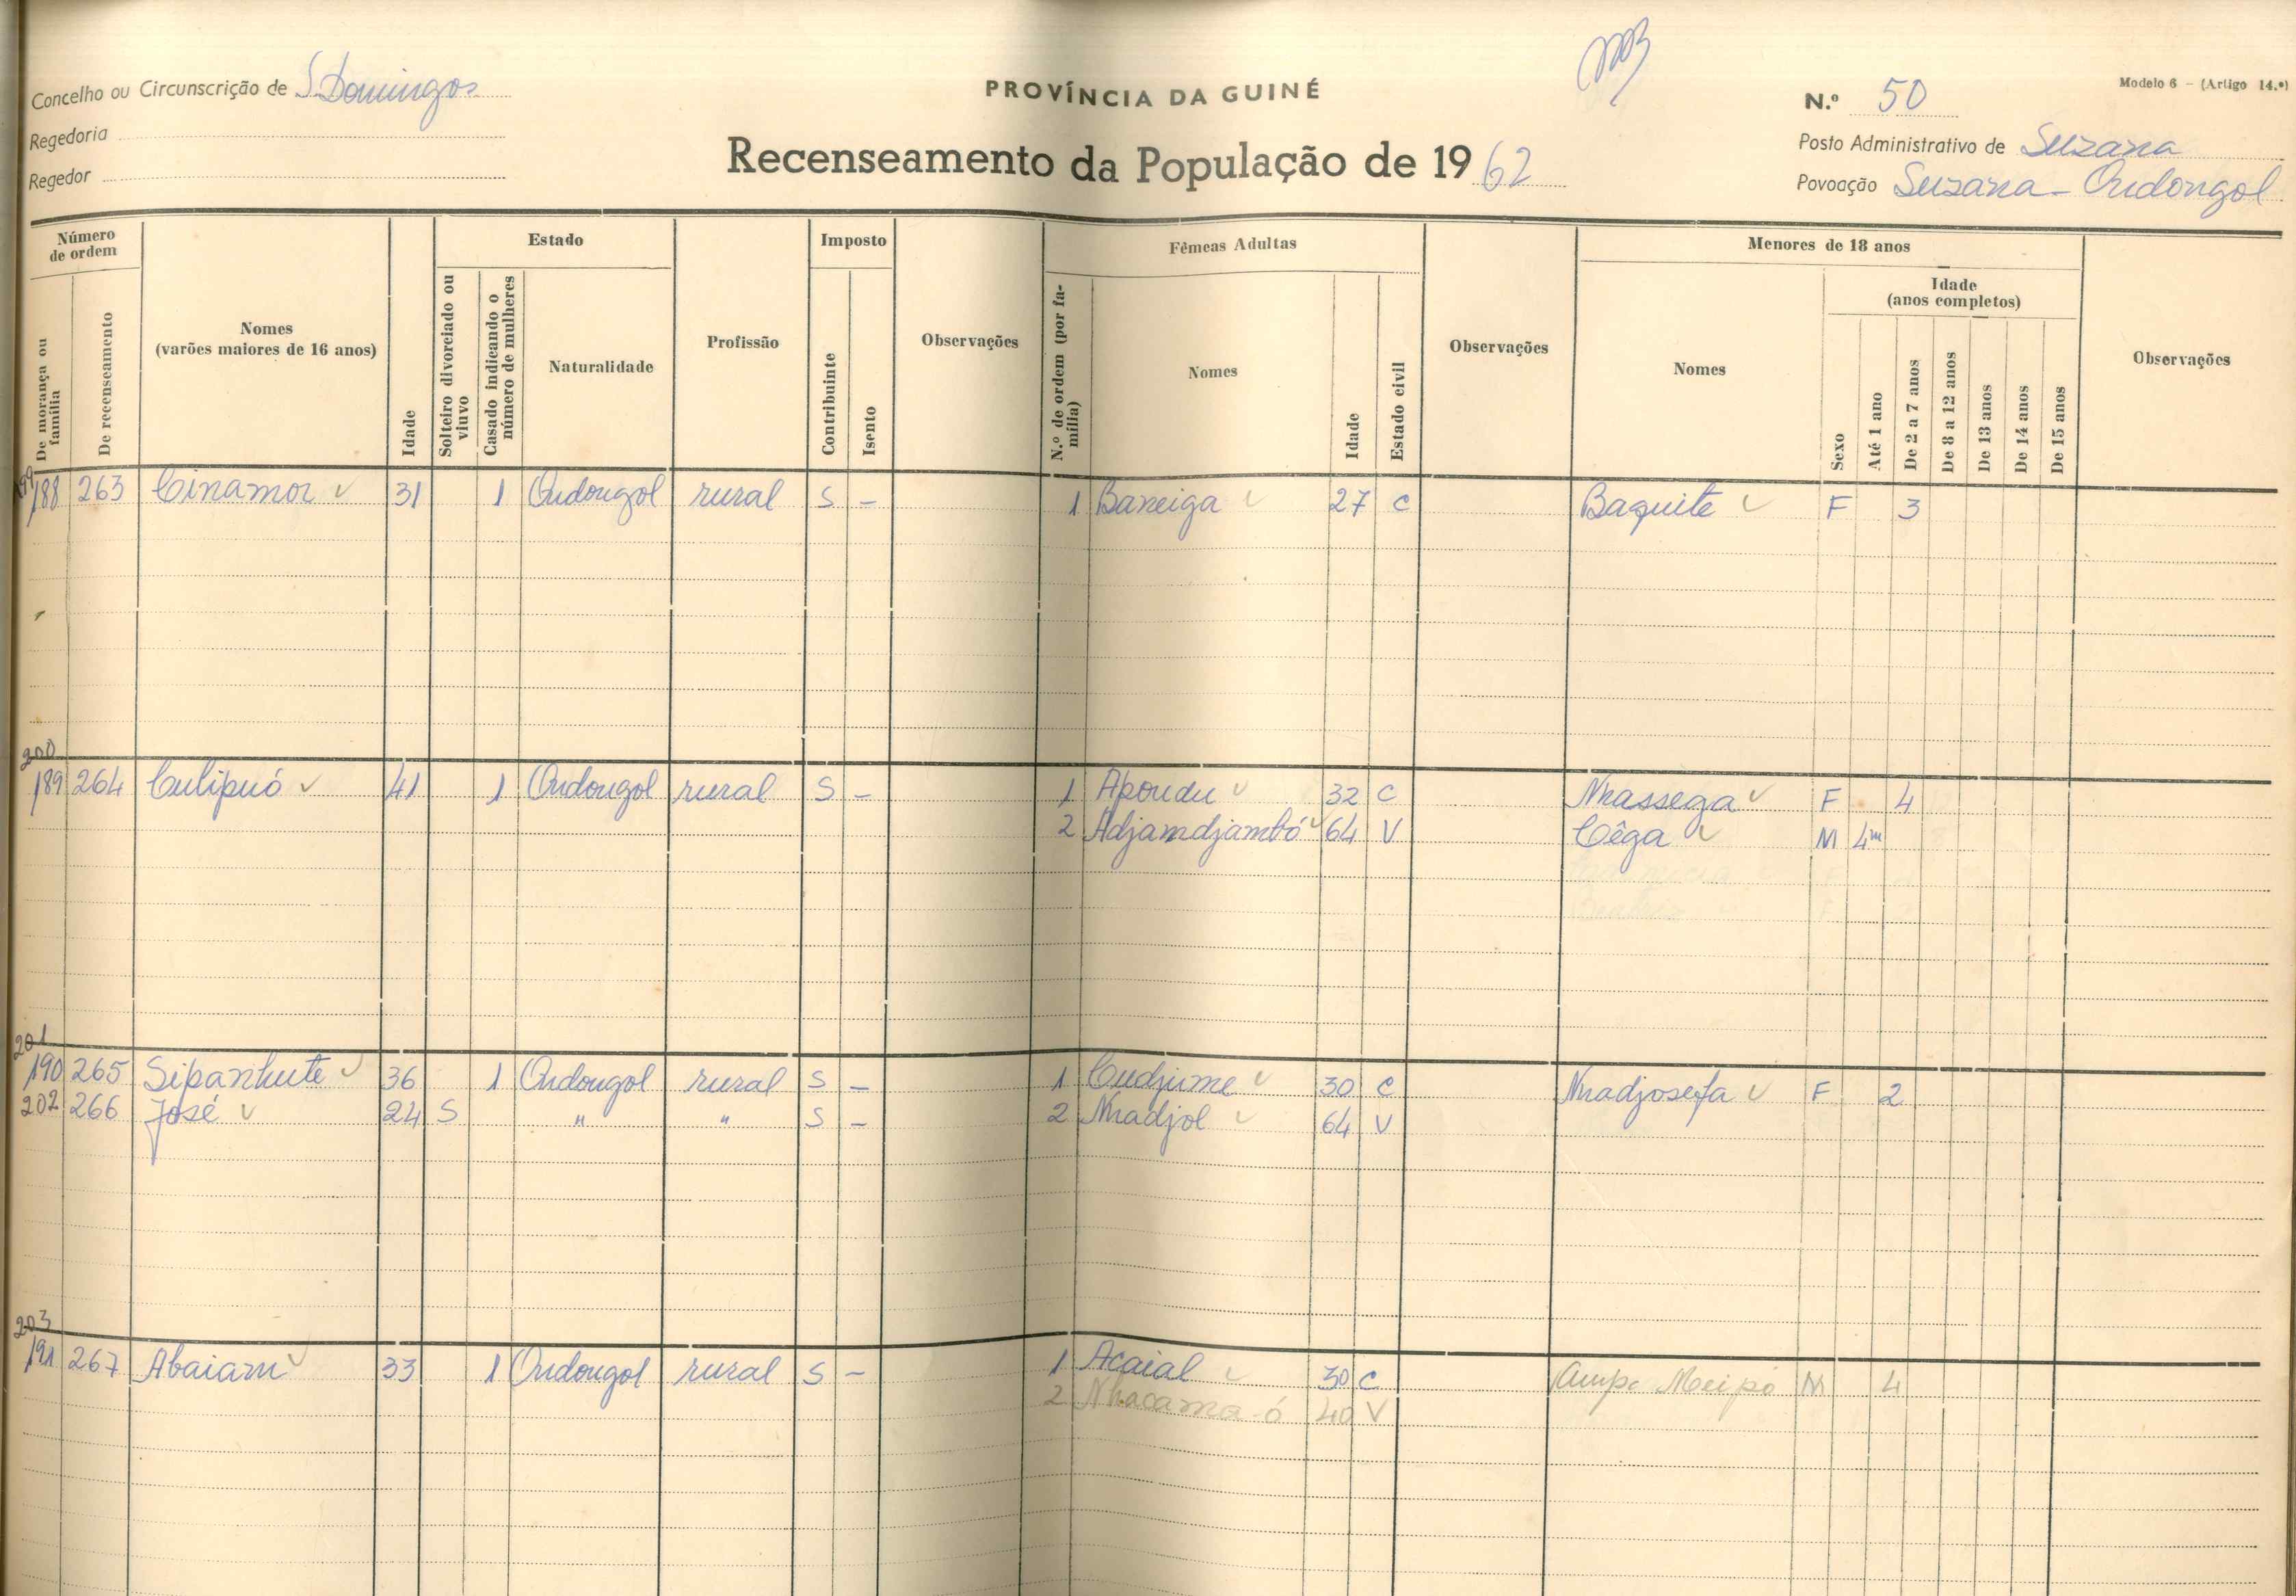 Concelho ou Circunscrição de S. Domingos
Regedoria
Regedor
PROVÍNCIA DA GUINÉ
Recenseamento da População de 1962
Modelo 6 - (Artigo 14.º)
N.º 50
Posto Administrativo de Suzana
Povoação Suzana - Ondongol
Número de ordem
De morança ou família
De recenseamento
Nomes (varões maiores de 16 anos)
Idade
Estado
Solteiro divorciado ou viuvo
Casado indicando o número de mulheres
Naturalidade
Profissão
Imposto
Contribuinte
Isento
Observações
Fêmeas Adultas
N.º de ordem (por família)
Nomes
Idade
Estado civil
Observações
Menores de 18 anos
Nomes
Sexo
Idade (anos completos)
Até 1 ano
De 2 a 7 anos
De 8 a 12 anos
De 13 anos
De 14 anos
De 15 anos
Observações
199
188 263 Cinamor 31 1 Ondongol rural S - 1 Baneiga 27 C Baquite F 3
200
189 264 Culipuó 41 1 Ondongol rural S - 1 Apondu 32 C Nhassega F 4
2 Adjamdjambó 64 V Cêga M 4m
201
190 265 Sipanhute 36 1 Ondongol rural S - 1 Cudjume 30 C Nhadjosefa F 2
202 266 José 24 S " " S - 2 Nhadjol 64 V
203
191 267 Abaiam 33 1 Ondongol rural S - 1 Acaial 30 C M 4
2 40 V